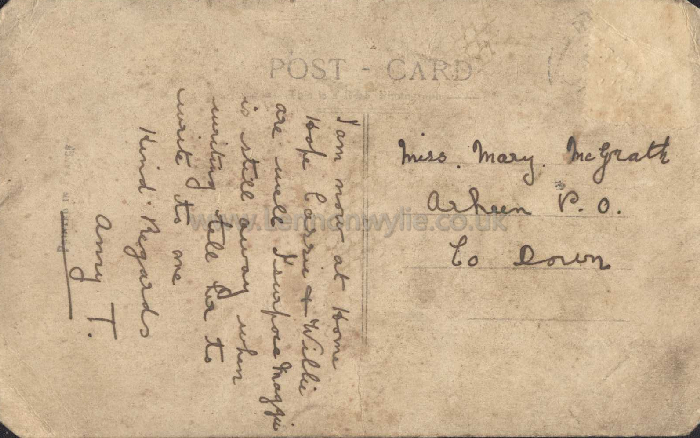 POST - CARD
I am now at Home
Hope Cassie & Willie
are well I surpose Maggie
is still away when
writing tell her to
write to me
Kind Regards
Amy T.
Miss. Mary. McGrath
P. O.
Co Down
www.vernonwylie.co.uk